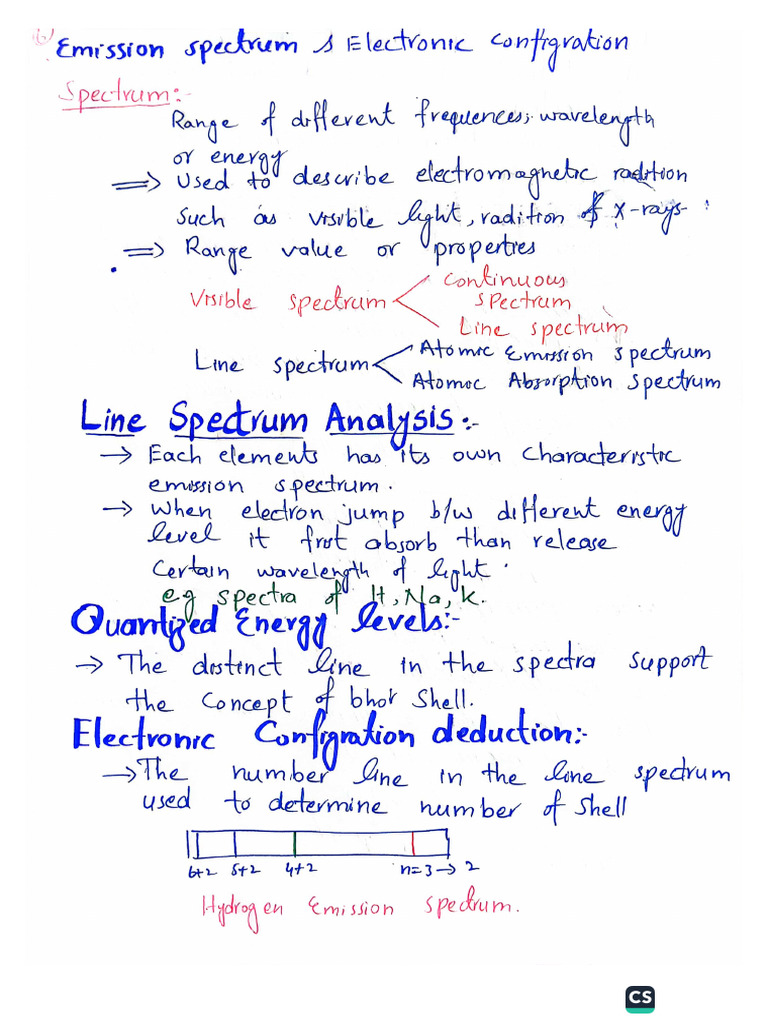 (6) Emission spectrum & Electronic Configration
Spectrum:-
Range of different frequences, wavelength
or energy
⇒ Used to describe electromagnetic radition
Such as visible light, radition of X-rays.
⇒ Range value or properties
Visible spectrum < Continuous spectrum
Line spectrum
Line spectrum < Atomic Emission spectrum
Atomic Absorption spectrum
Line Spectrum Analysis:-
→ Each elements has its own characteristic
emission spectrum.
→ When electron jump b/w different energy
level it first absorb than release
Certain wavelength of light.
e.g spectra of H, Na, K.
Quantized Energy levels:-
→ The distinct line in the spectra support
the concept of bhor Shell.
Electronic Configration deduction:-
→ The number line in the line spectrum
used to determine number of Shell
6→2 5→2 4→2 n=3→2
Hydrogen Emission spedrum.
CS